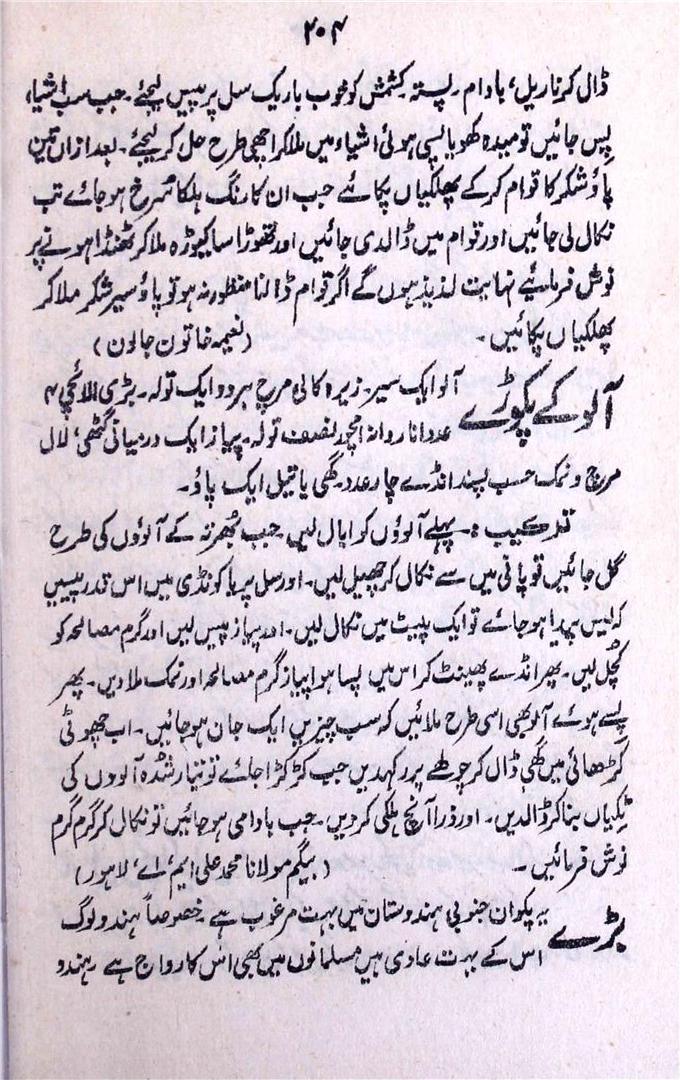 ۲۰۴
ڈال کر ناریل، بادام، پستہ، کشمش کو خوب باریک سل پر پیس لیجئے۔ جب سب اشیاء
پِس جائیں تو میدہ کھویا پسی ہوئی اشیاء میں ملا کر اچھی طرح حل کر لیجئے۔ بعد ازاں تین
پاؤ شکر کا قوام کر کے پھلکیاں پکائیے جب ان کا رنگ ہلکا سُرخ ہو جائے تب
نکال لی جائیں اور قوام میں ڈالدی جائیں اور تھوڑا سا کیوڑہ ملا کر ٹھنڈا ہونے پر
نوش فرمائیے نہایت لذیذ ہوں گے اگر قوام ڈالنا منظور نہ ہو تو پاؤ سیر شکر ملا کر
پھلکیاں پکائیں۔ (نعیمہ خاتون جالون)
آلو کے پکوڑے
آلو ایک سیر۔ زیرہ کالی مرچ ہر دو ایک تولہ۔ بڑی الائچی ۴
عدد انار دانہ نصف تولہ۔ پیاز ایک درمیانی گٹھی، لال
مرچ و نمک حسب پسند انڈے چار عدد۔ گھی یا تیل ایک پاؤ۔
ترکیب :۔ پہلے آلوؤں کو ابال لیں جب بُھرتہ کے آلوؤں کی طرح
گل جائیں تو پانی میں سے نکال کر چھیل لیں۔ اور سل پر یا کونڈی میں اس قدر پیسیں
کہ لیس پیدا ہو جائے تو ایک پلیٹ میں نکال لیں۔ اور پیاز پیس لیں اور گرم مصالحہ کو
کچل لیں۔ پھر انڈے پھینٹ کر اس میں پسا ہوا پیاز گرم مصالحہ اور نمک ملا دیں۔ پھر
پسے ہوئے آلو بھی اسی طرح ملائیں کہ سب چیزیں ایک جان ہو جائیں۔ اب چھوٹی
کڑھائی میں گھی ڈال کر چولھے پر رکھدیں جب کڑکڑا جائے تو تیار شدہ آلوؤں کی
ٹکیاں بنا کر ڈالدیں۔ اور ذرا آنچ ہلکی کر دیں۔ جب بادامی ہو جائیں تو نکال کر گرم گرم
نوش فرمائیں۔ (بیگم مولانا محمد علی ایم، اے، لاہور)
بڑے
یہ پکوان جنوبی ہندوستان میں بہت مرغوب ہے خصوصاً ہندو لوگ
اس کے بہت عادی ہیں مسلمانوں میں بھی اس کا رواج ہے۔ ہندو